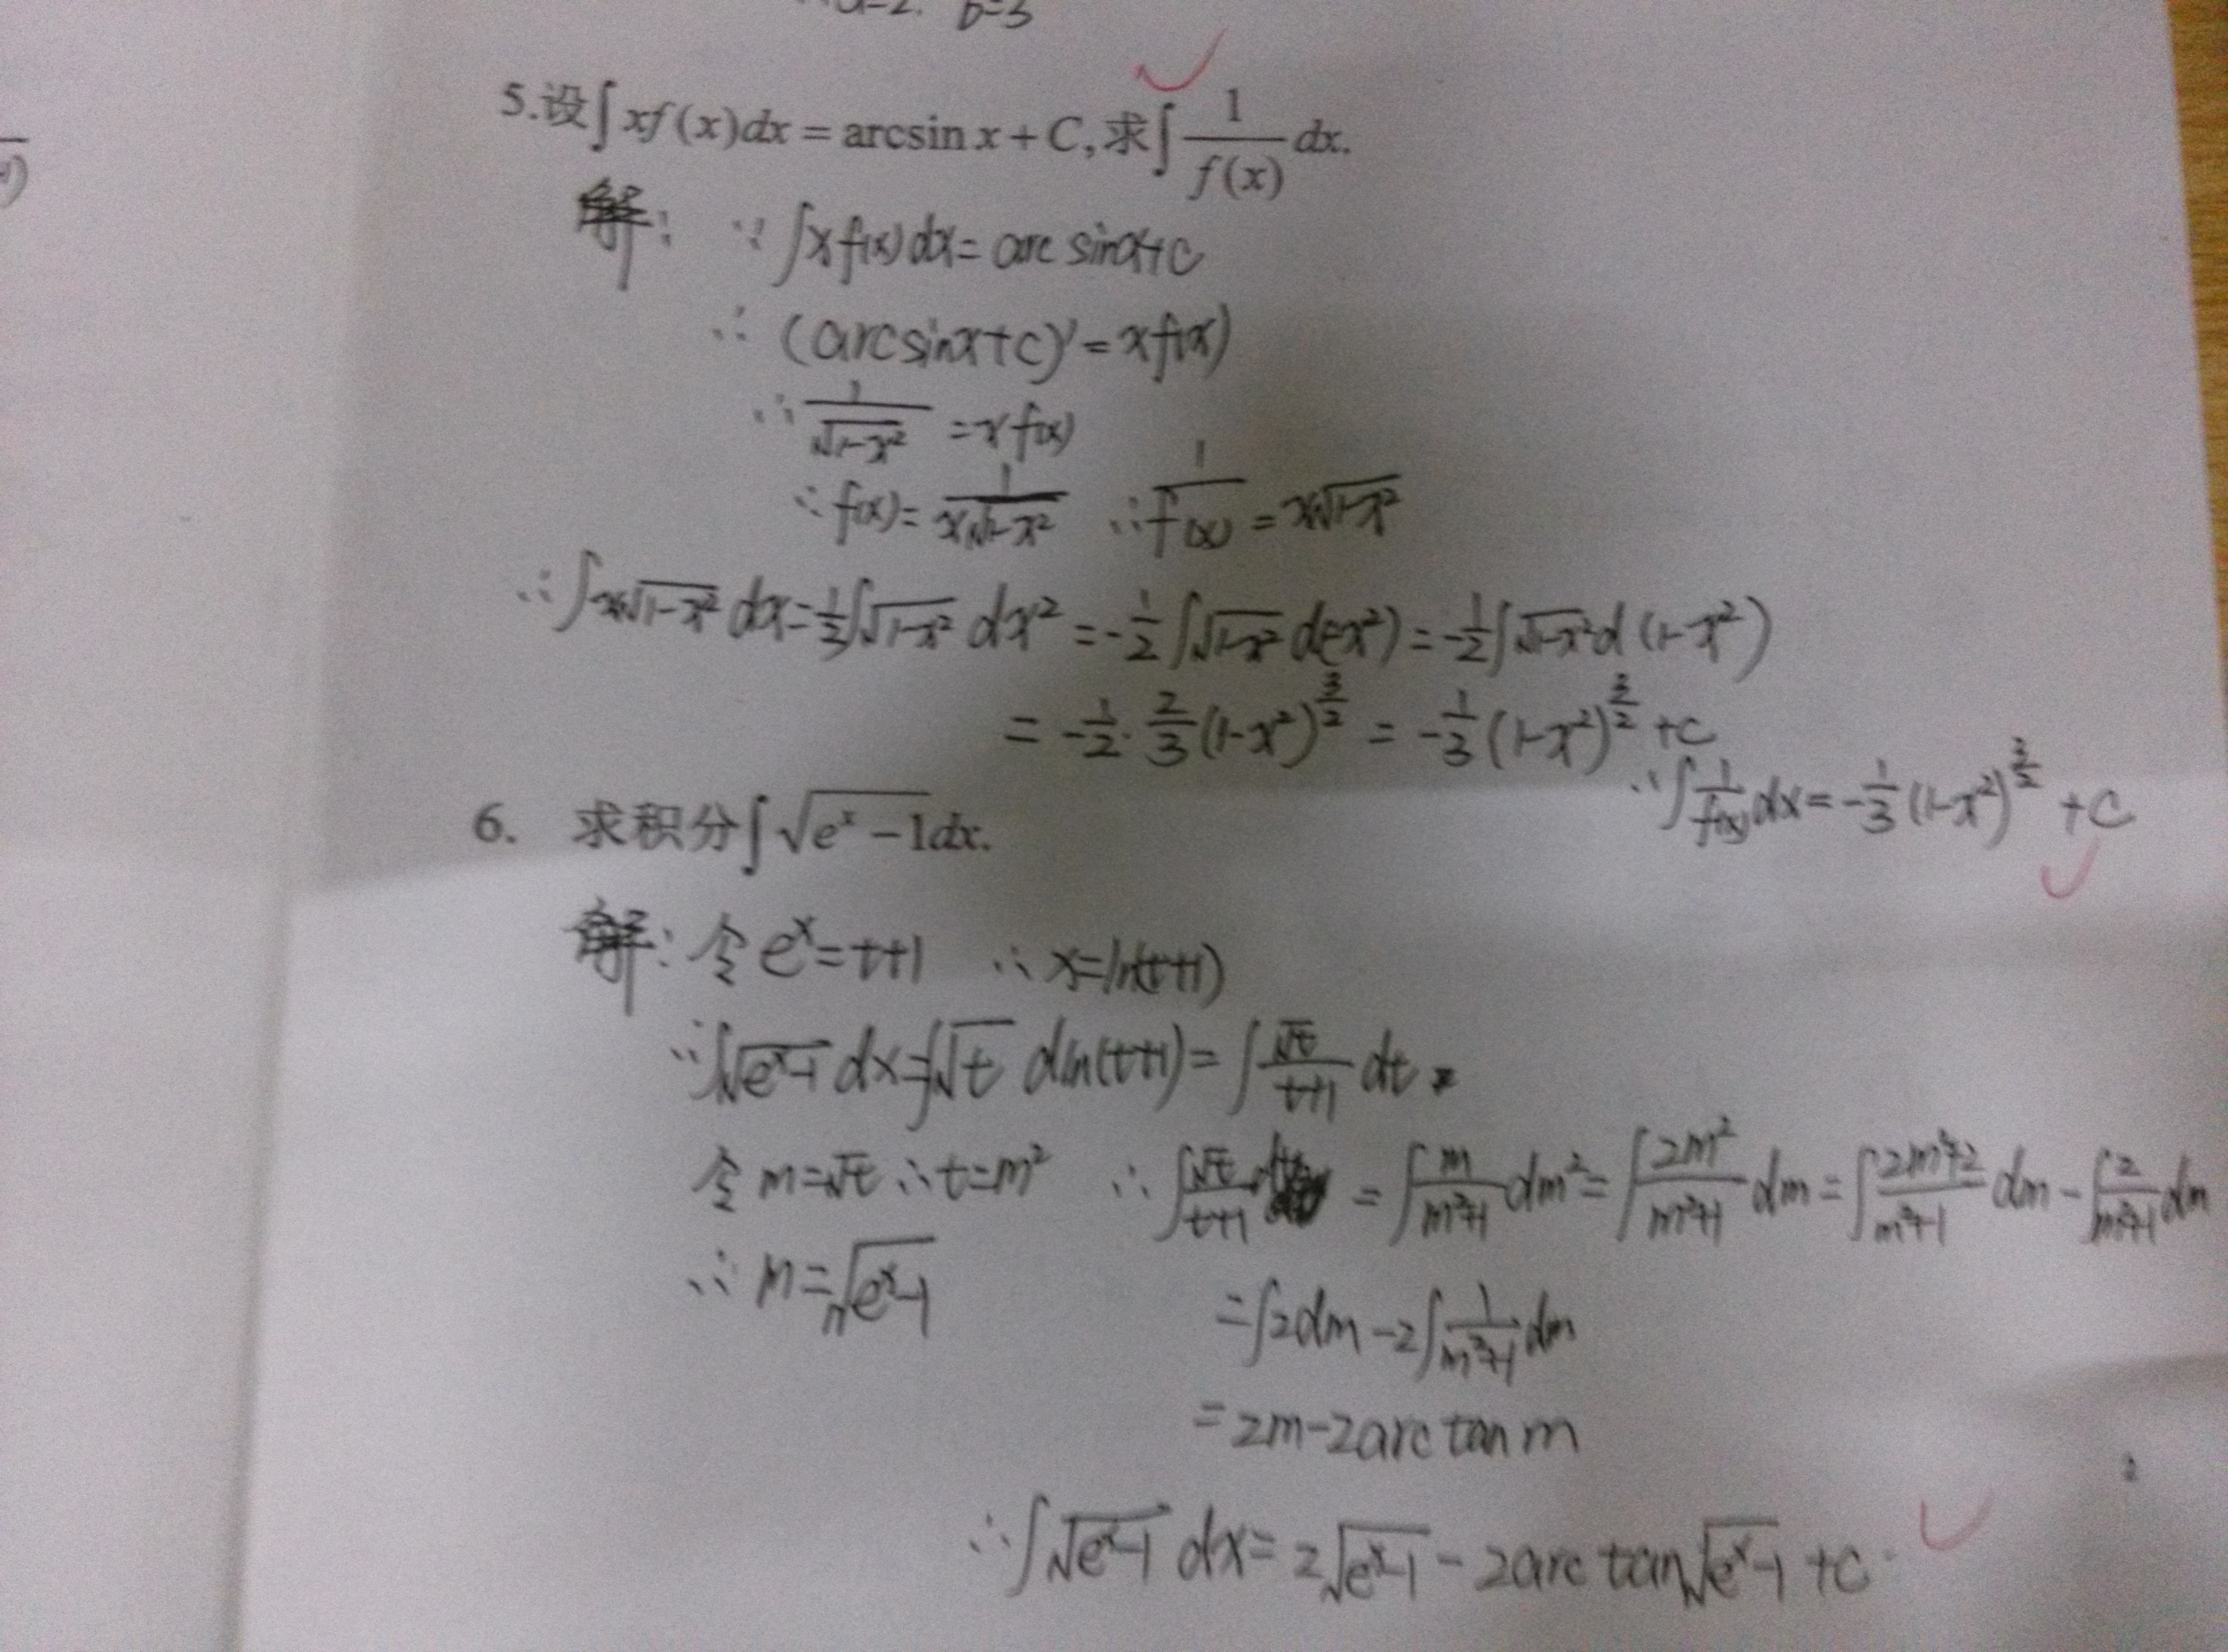 a=2. b=3
5.设∫xf(x)dx=arcsin x+C,求∫1/f(x) dx.
解: ∵ ∫xf(x)dx=arc sinx+C
∴ (arcsinx+c)'=xf(x)
∴ 1/√(1-x²) =xf(x)
∴ f(x)=1/(x√(1-x²)) ∴ 1/f(x) =x√(1-x²)
∴ ∫x√(1-x²) dx=½∫√(1-x²) dx² =-½∫√(1-x²) d(-x²)=-½∫√(1-x²) d(1-x²)
= -½·⅔(1-x²)^(3/2) = -⅓(1-x²)^(3/2) +C
∴∫1/f(x) dx=-⅓(1-x²)^(3/2) +C
6. 求积分∫√(e^x-1)dx.
解: 令e^x=t+1 ∴x=ln(t+1)
∴∫√(e^x-1) dx=∫√t dln(t+1)=∫√t/(t+1) dt
令m=√t ∴t=m² ∴∫√t/(t+1) dt =∫m/(m²+1) dm²=∫2m²/(m²+1) dm=∫(2m²+2)/(m²+1) dm-∫2/(m²+1) dm
∴ m=√(e^x-1)
=∫2dm-2∫1/(m²+1) dm
=2m-2arc tan m
∴∫√(e^x-1) dx=2√(e^x-1)-2arc tan√(e^x-1)+C